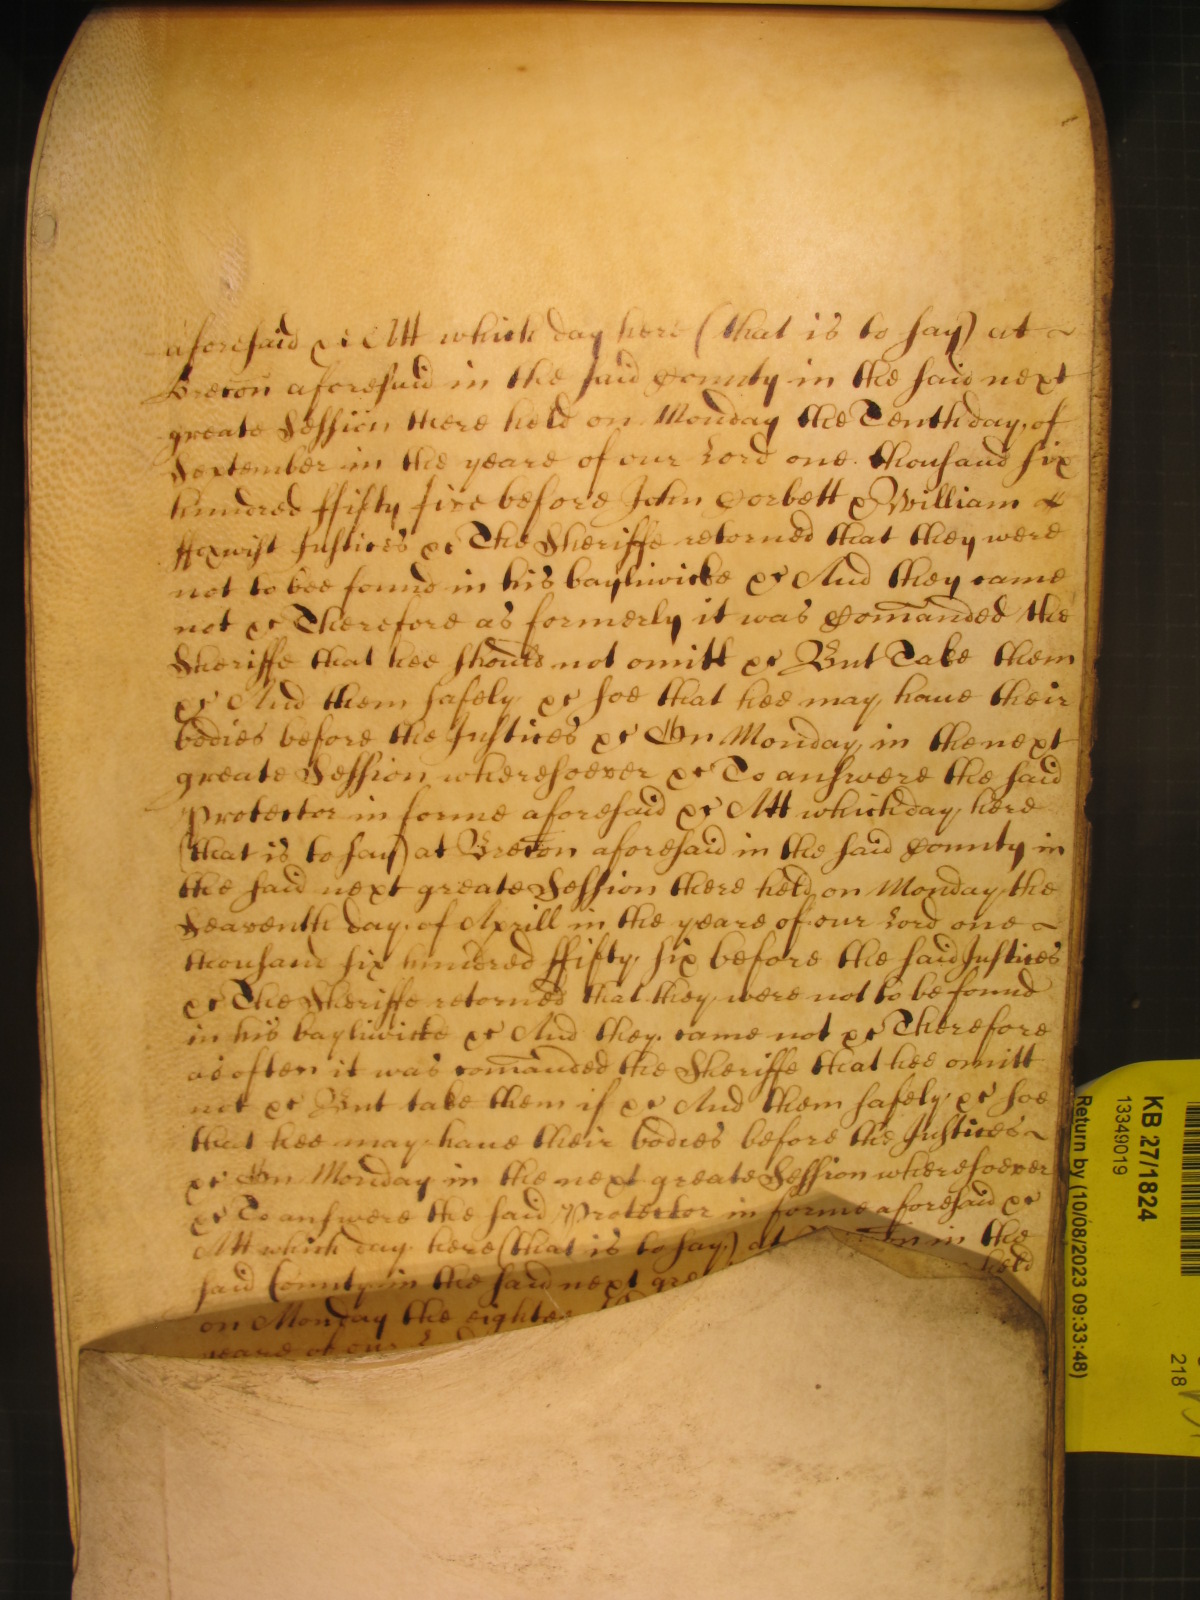 aforesaid &c Att which day here (that is to say) at ~
Brecon aforesaid in the said County in the said next
greate Session there held on Monday the Tenth day of
September in the yeare of our Lord one thousand six
hundred ffifty five before John Corbett & William
ffoxwist Justices &c The Sheriffe retorned that they were
not to bee found in his bayliwicke &c And they came
not &c Therefore as formerly it was Comanded the
Sheriffe that hee should not omitt &c But Take them
&c And them safely &c soe that hee may have their
bodies before the Justices &c On Monday in the next
greate Session wheresoever &c To answere the said
Protector in forme aforesaid &c Att which day here
(that is to say) at Brecon aforesaid in the said County in
the said next greate Session there held on Monday the
Seaventh day of Aprill in the yeare of our Lord one ~
thousand six hundred ffifty six before the said Justices
&c The Sheriffe retorned that they were not to be found
in his bayliwicke &c And they came not &c Therefore
as often it was comanded the Sheriffe that hee omitt
not &c But take them if &c And them safely &c soe
that hee may have their bodies before the Justices ~
&c On Monday in the next greate Session wheresoever
&c To answere the said Protector in forme aforesaid &c
Att which day here (that is to say) at in the
said County in the said next held
on Monday the
yeare of our
KB 27/1824
13349019
Return by (10/08/2023 09:33:48)
218